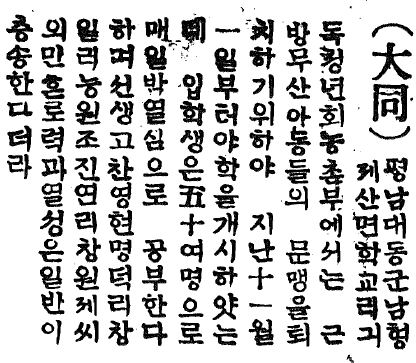 (大同)
평남대동군남형
제산면학교리긔
독청년회농촌부에서는 근
방무산아동들의 문맹을퇴
치하기위하야 지난十一월
一일부터야학을개시하얏는
입학생은五十여명으로
매일밤열심으로 공부한다
하며선생고찬영현명덕리창
일리능원조진연리창원제씨
외만흔로력과열성은일반이
층송한다더라